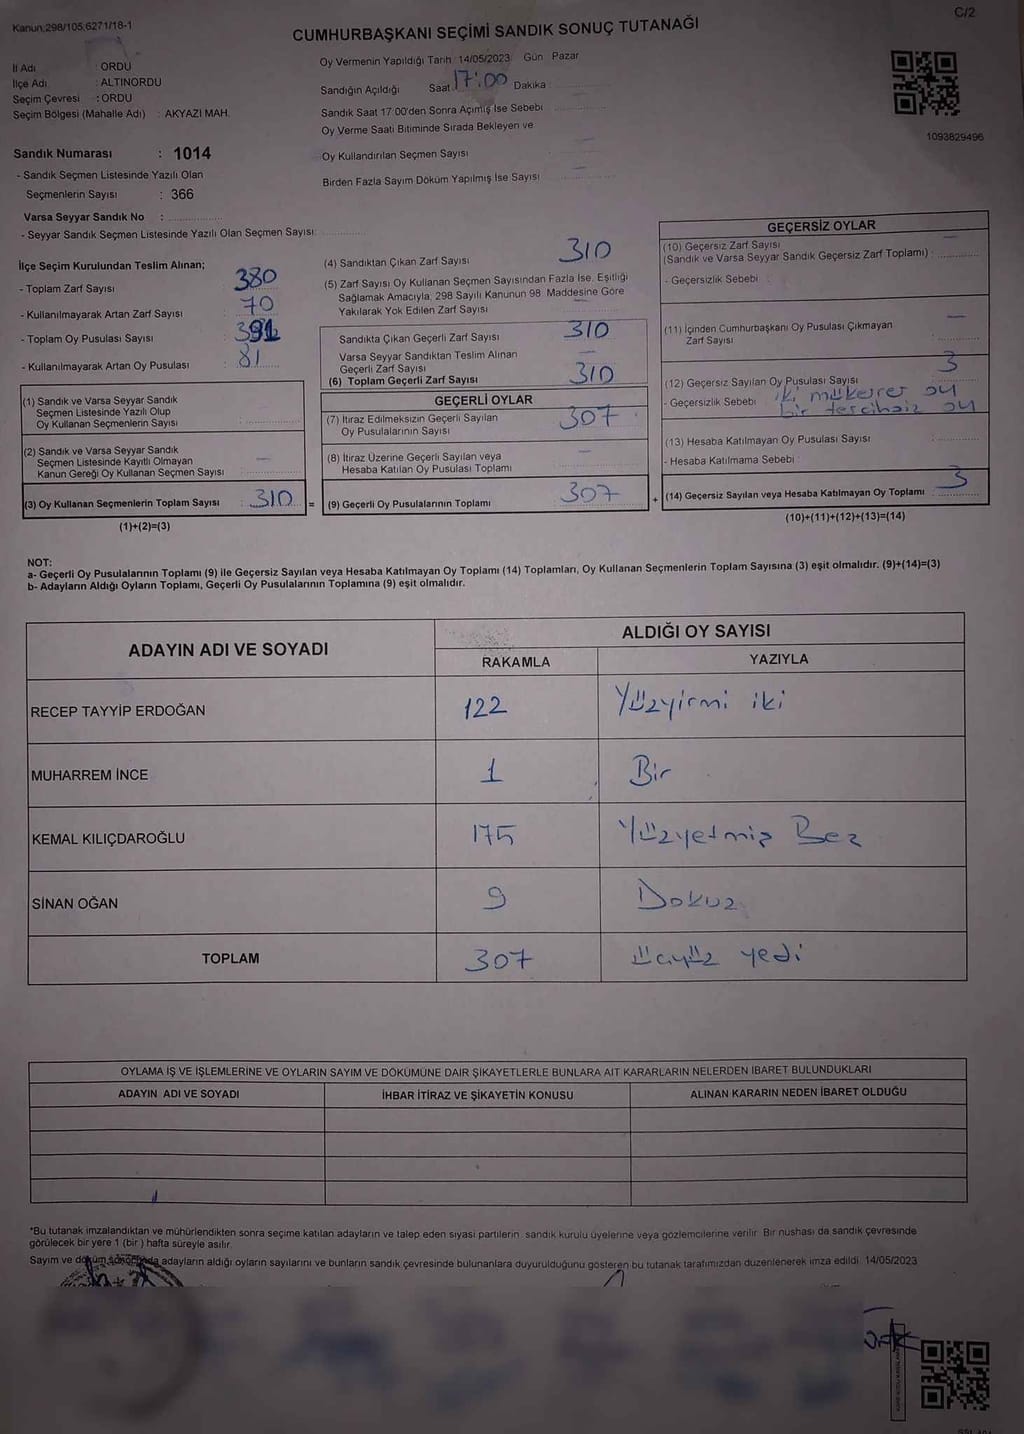 Kanun.298/105.6271/18-1
C/2
CUMHURBAŞKANI SEÇİMİ SANDIK SONUÇ TUTANAĞI
İl Adı : ORDU
İlçe Adı : ALTINORDU
Seçim Çevresi : ORDU
Seçim Bölgesi (Mahalle Adı) : AKYAZI MAH.
Oy Vermenin Yapıldığı Tarih 14/05/2023 Gün Pazar
Sandığın Açıldığı Saat 17:00 Dakika
Sandık Saat 17:00'den Sonra Açımış İse Sebebi
Oy Verme Saati Bitiminde Sırada Bekleyen ve
Oy Kullandırılan Seçmen Sayısı
Birden Fazla Sayım Döküm Yapılmış İse Sayısı
1093829496
Sandık Numarası : 1014
- Sandık Seçmen Listesinde Yazılı Olan
Seçmenlerin Sayısı : 366
Varsa Seyyar Sandık No :
- Seyyar Sandık Seçmen Listesinde Yazılı Olan Seçmen Sayısı:
İlçe Seçim Kurulundan Teslim Alınan;
- Toplam Zarf Sayısı : 380
- Kullanılmayarak Artan Zarf Sayısı : 70
- Toplam Oy Pusulası Sayısı : 391
- Kullanılmayarak Artan Oy Pusulası : 81
(1) Sandık ve Varsa Seyyar Sandık
Seçmen Listesinde Yazılı Olup
Oy Kullanan Seçmenlerin Sayısı
(2) Sandık ve Varsa Seyyar Sandık
Seçmen Listesinde Kayıtlı Olmayan
Kanun Gereği Oy Kullanan Seçmen Sayısı —
(3) Oy Kullanan Seçmenlerin Toplam Sayısı 310 =
(1)+(2)=(3)
(4) Sandıktan Çıkan Zarf Sayısı 310
(5) Zarf Sayısı Oy Kullanan Seçmen Sayısından Fazla İse, Eşitliği
Sağlamak Amacıyla, 298 Sayılı Kanunun 98. Maddesine Göre
Yakılarak Yok Edilen Zarf Sayısı
Sandıkta Çıkan Geçerli Zarf Sayısı 310
Varsa Seyyar Sandıktan Teslim Alınan
Geçerli Zarf Sayısı —
(6) Toplam Geçerli Zarf Sayısı 310
GEÇERLİ OYLAR
(7) İtiraz Edilmeksizin Geçerli Sayılan
Oy Pusulalarının Sayısı 307
(8) İtiraz Üzerine Geçerli Sayılan veya
Hesaba Katılan Oy Pusulası Toplamı —
(9) Geçerli Oy Pusulalarının Toplamı 307 +
GEÇERSİZ OYLAR
(10) Geçersiz Zarf Sayısı —
(Sandık ve Varsa Seyyar Sandık Geçersiz Zarf Toplamı) :
- Geçersizlik Sebebi :
(11) İçinden Cumhurbaşkanı Oy Pusulası Çıkmayan
Zarf Sayısı —
(12) Geçersiz Sayılan Oy Pusulası Sayısı 3
- Geçersizlik Sebebi : iki mükerrer oy
bir tercihsiz oy
(13) Hesaba Katılmayan Oy Pusulası Sayısı
- Hesaba Katılmama Sebebi :
(14) Geçersiz Sayılan veya Hesaba Katılmayan Oy Toplamı 3
(10)+(11)+(12)+(13)=(14)
NOT:
a- Geçerli Oy Pusulalarının Toplamı (9) ile Geçersiz Sayılan veya Hesaba Katılmayan Oy Toplamı (14) Toplamları, Oy Kullanan Seçmenlerin Toplam Sayısına (3) eşit olmalıdır. (9)+(14)=(3)
b- Adayların Aldığı Oyların Toplamı, Geçerli Oy Pusulalarının Toplamına (9) eşit olmalıdır.
ADAYIN ADI VE SOYADI
ALDIĞI OY SAYISI
RAKAMLA YAZIYLA
RECEP TAYYİP ERDOĞAN 122 Yüzyirmi iki
MUHARREM İNCE 1 Bir
KEMAL KILIÇDAROĞLU 175 Yüzyetmiş Beş
SİNAN OĞAN 9 Dokuz
TOPLAM 307 üçyüz yedi
OYLAMA İŞ VE İŞLEMLERİNE VE OYLARIN SAYIM VE DÖKÜMÜNE DAİR ŞİKAYETLERLE BUNLARA AİT KARARLARIN NELERDEN İBARET BULUNDUKLARI
ADAYIN ADI VE SOYADI İHBAR İTİRAZ VE ŞİKAYETİN KONUSU ALINAN KARARIN NEDEN İBARET OLDUĞU
*Bu tutanak imzalandıktan ve mühürlendikten sonra seçime katılan adayların ve talep eden siyasi partilerin sandık kurulu üyelerine veya gözlemcilerine verilir. Bir nushası da sandık çevresinde
görülecek bir yere 1 (bir) hafta süreyle asılır.
Sayım ve döküm sonunda adayların aldığı oyların sayılarını ve bunların sandık çevresinde bulunanlara duyurulduğunu gösteren bu tutanak tarafımızdan düzenlenerek imza edildi. 14/05/2023